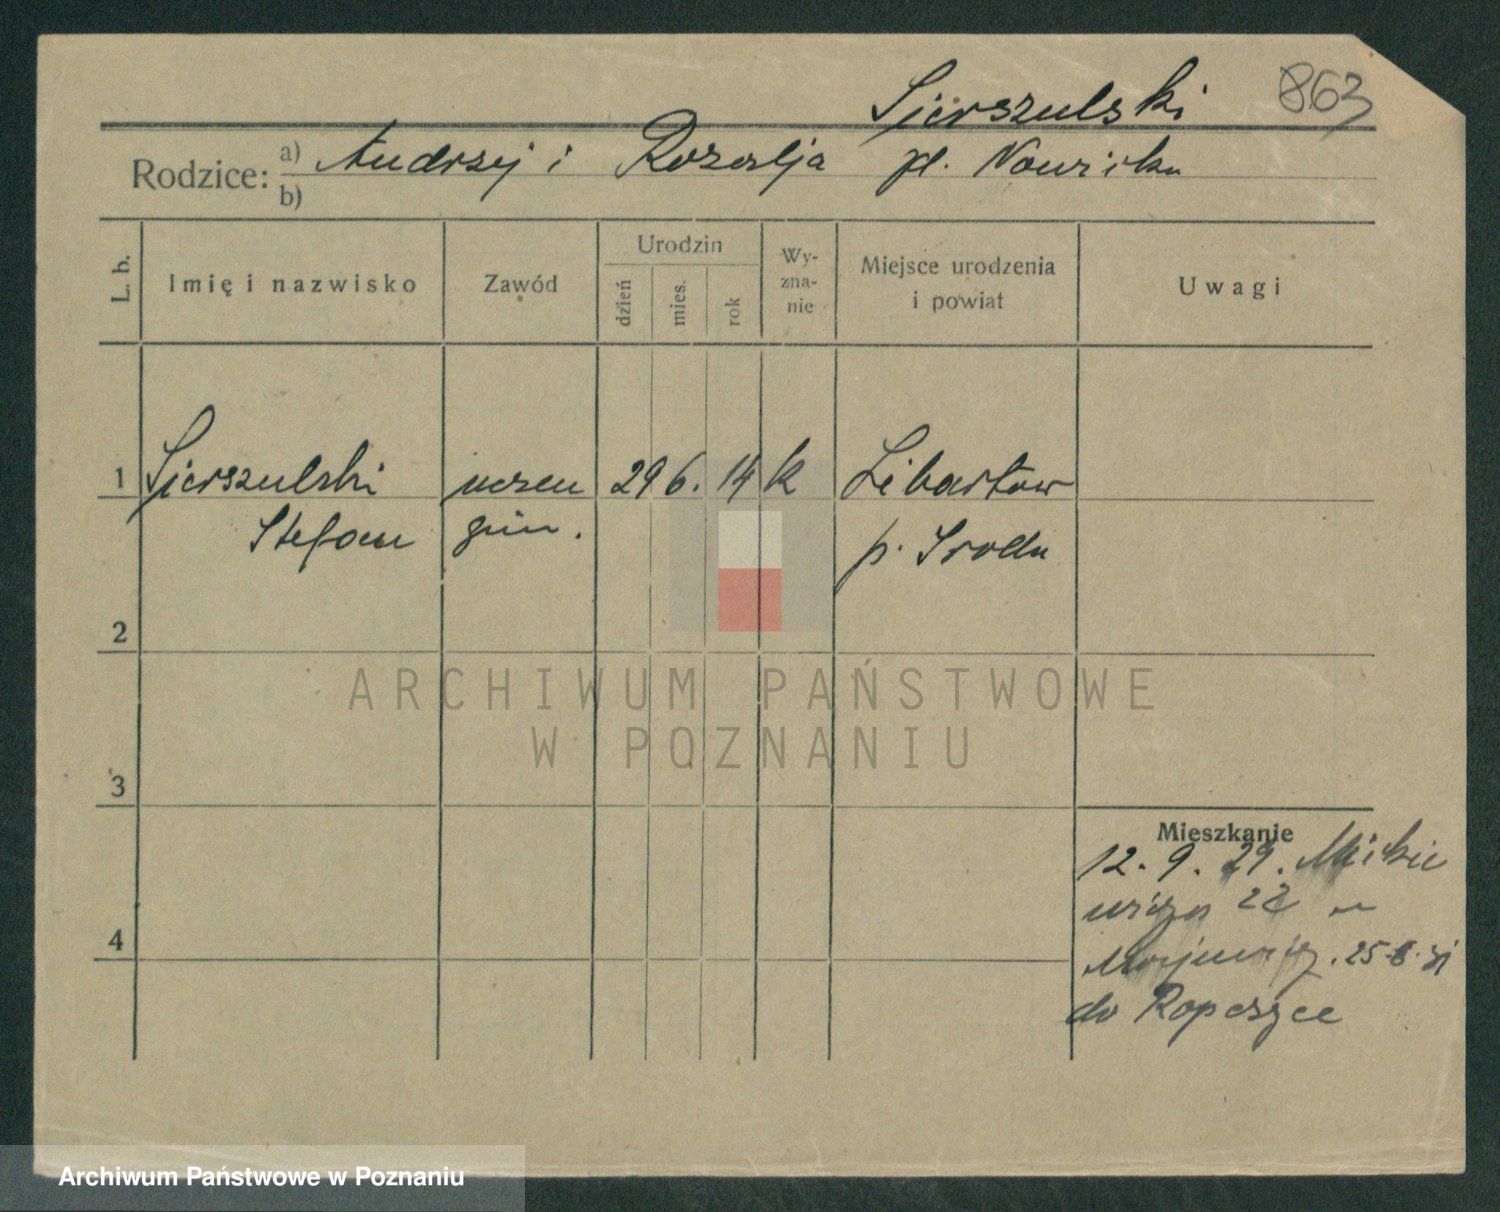 863
Sierszulski
Rodzice: a) Andrzej i Rozalja zd. Nowicka
b)
L. b.
Imię i nazwisko
Zawód
Urodzin
dzień
mies.
rok
Wy-
zna-
nie
Miejsce urodzenia
i powiat
Uwagi
1 Sierszulski uczeń 29 6. 14 k Libartow
Stefan gim. p. Sroda
2
3
4
Mieszkanie
12. 9. 29. Mickie
wicza 22
25.8.31
do
ARCHIWUM PAŃSTWOWE
W POZNANIU
Archiwum Państwowe w Poznaniu